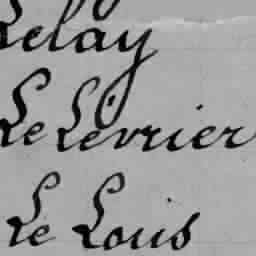 Lelay
Le Lévrier
Le Louis